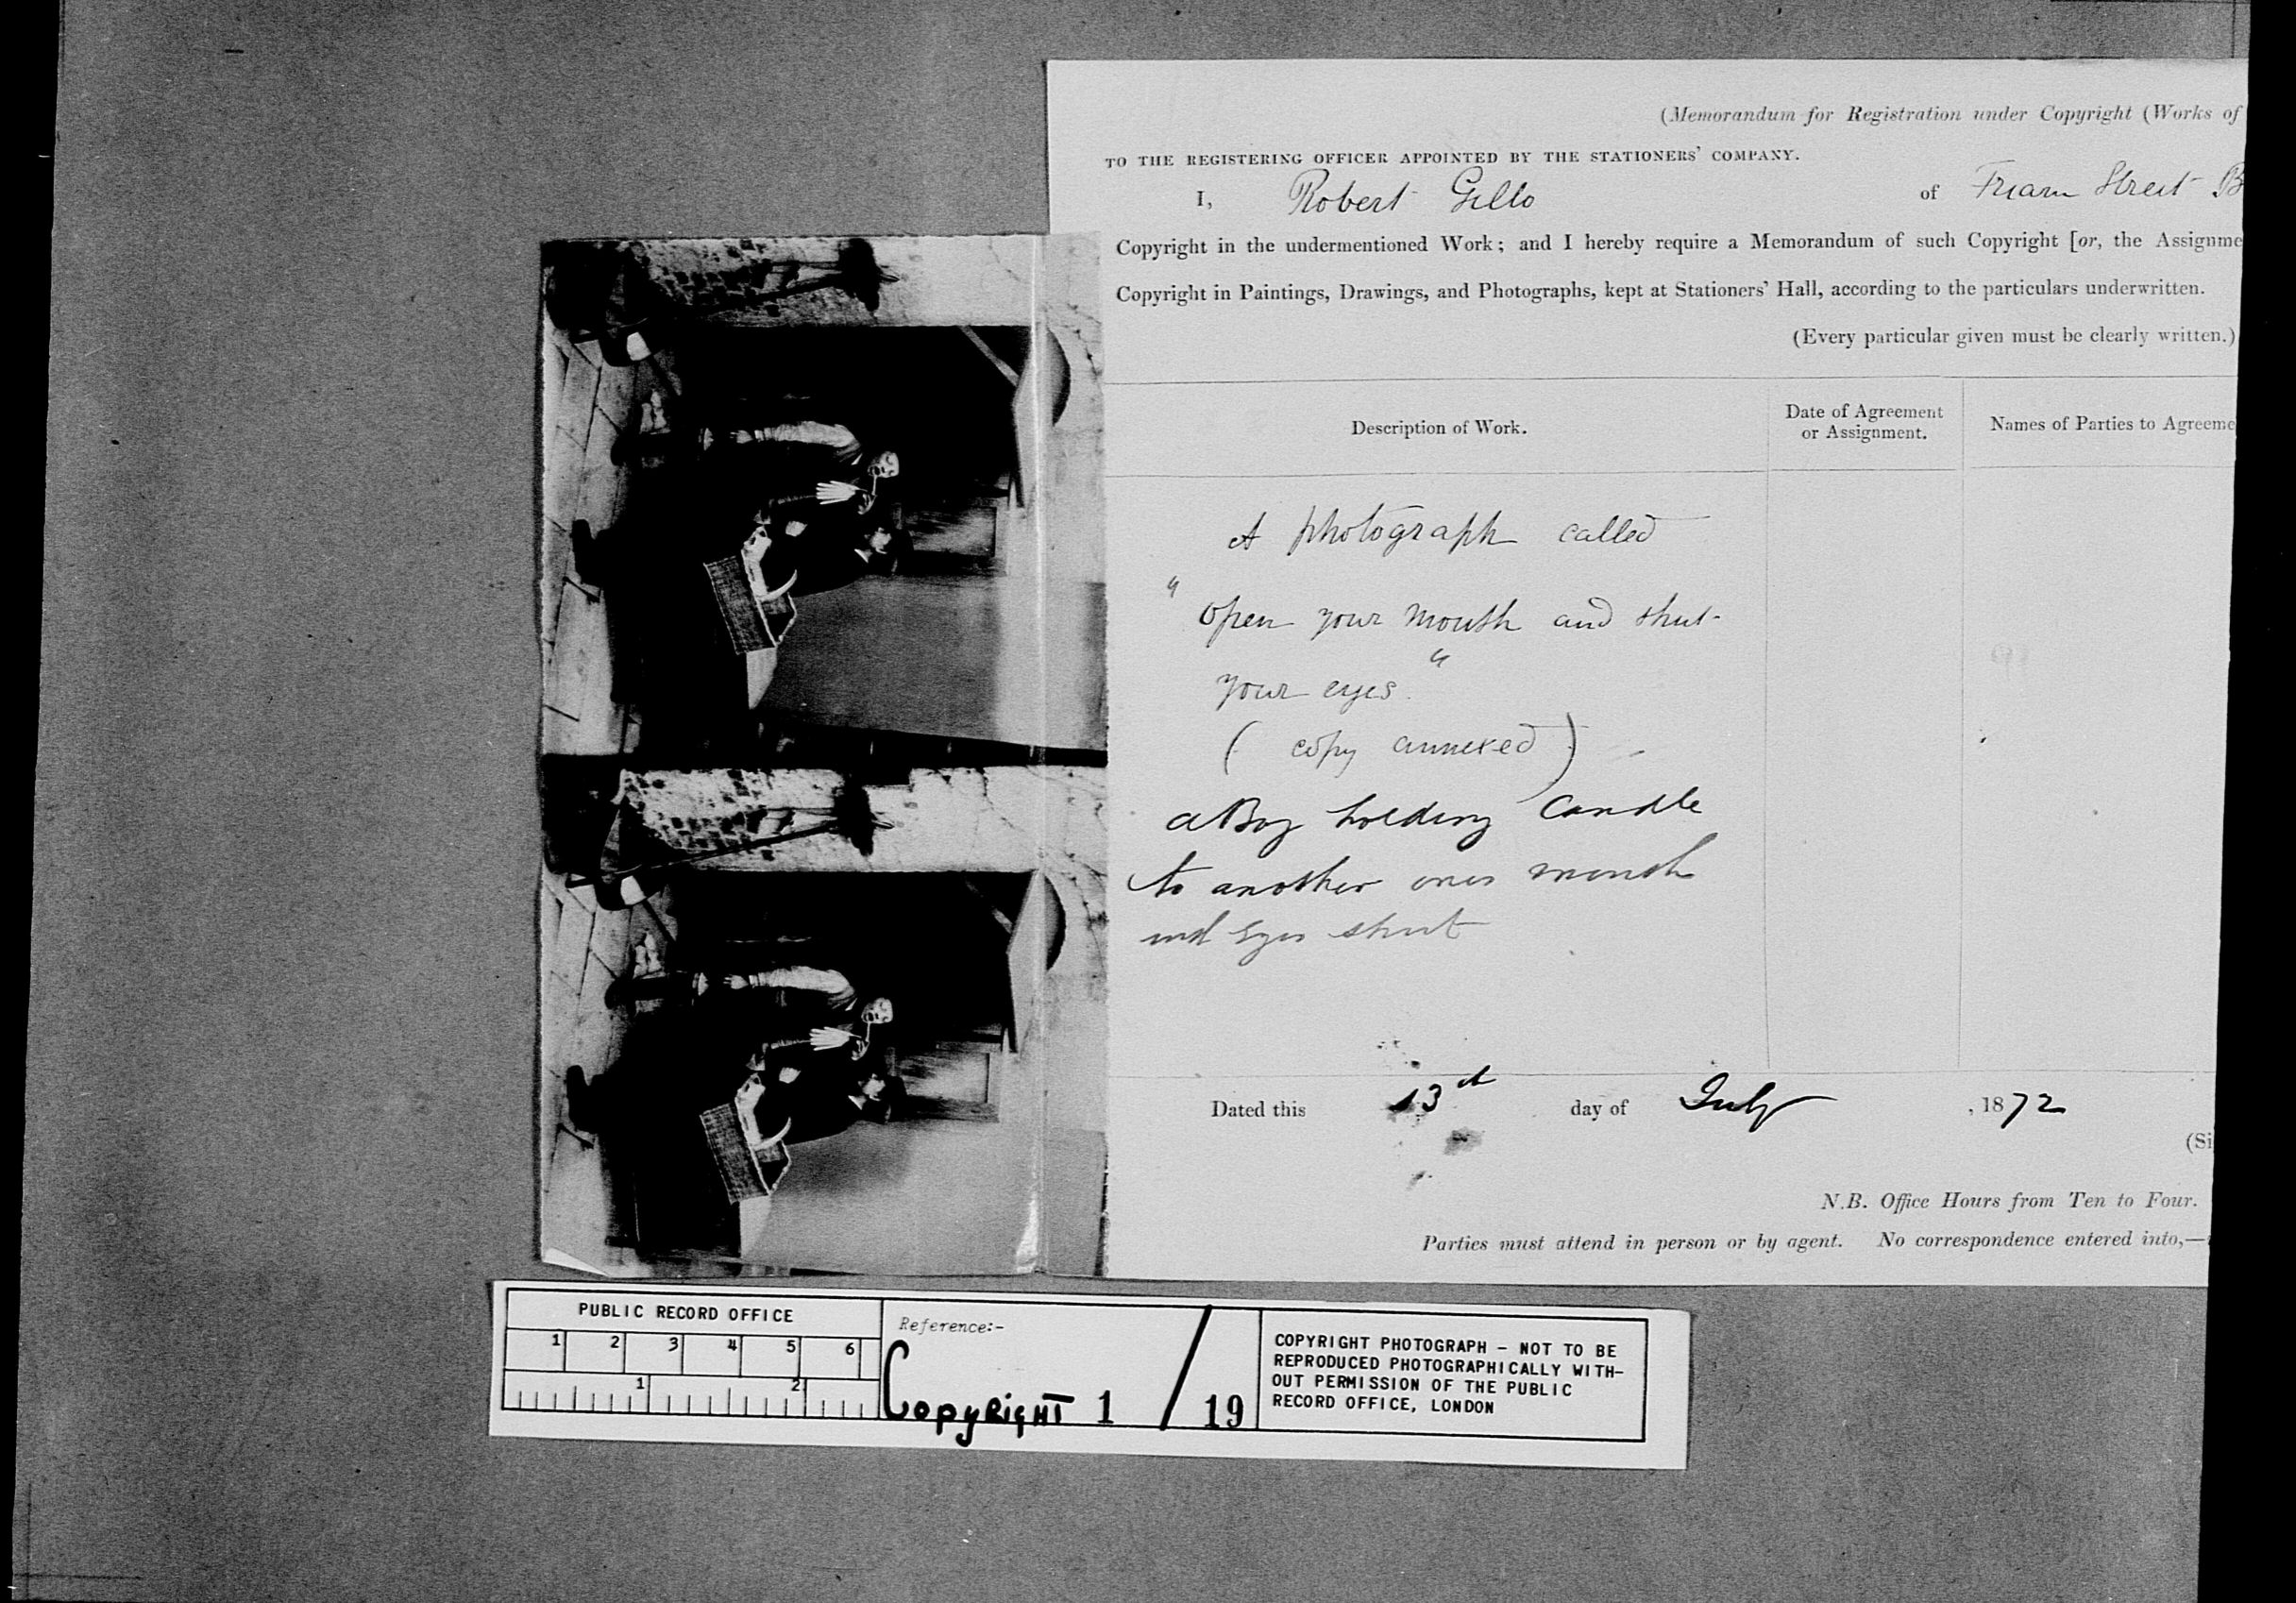 (Memorandum for Registration under Copyright (Works of
TO THE REGISTERING OFFICER APPOINTED BY THE STATIONERS' COMPANY.
I, Robert Gillo of Friarn Street B
Copyright in the undermentioned Work; and I hereby require a Memorandum of such Copyright [or, the Assignme
Copyright in Paintings, Drawings, and Photographs, kept at Stationers' Hall, according to the particulars underwritten.
(Every particular given must be clearly written.)
Description of Work.
Date of Agreement
or Assignment.
Names of Parties to Agreeme
A photograph called
"Open your mouth and shut
your eyes."
(copy annexed)
A Boy holding Candle
to another ones mouth
and Eyes shut
Dated this 13th day of July, 1872
(Si
N.B. Office Hours from Ten to Four.
Parties must attend in person or by agent. No correspondence entered into,—
PUBLIC RECORD OFFICE
1 2 3 4 5 6
1 2
Reference:-
Copyright 1 / 19
COPYRIGHT PHOTOGRAPH - NOT TO BE
REPRODUCED PHOTOGRAPHICALLY WITH-
OUT PERMISSION OF THE PUBLIC
RECORD OFFICE, LONDON